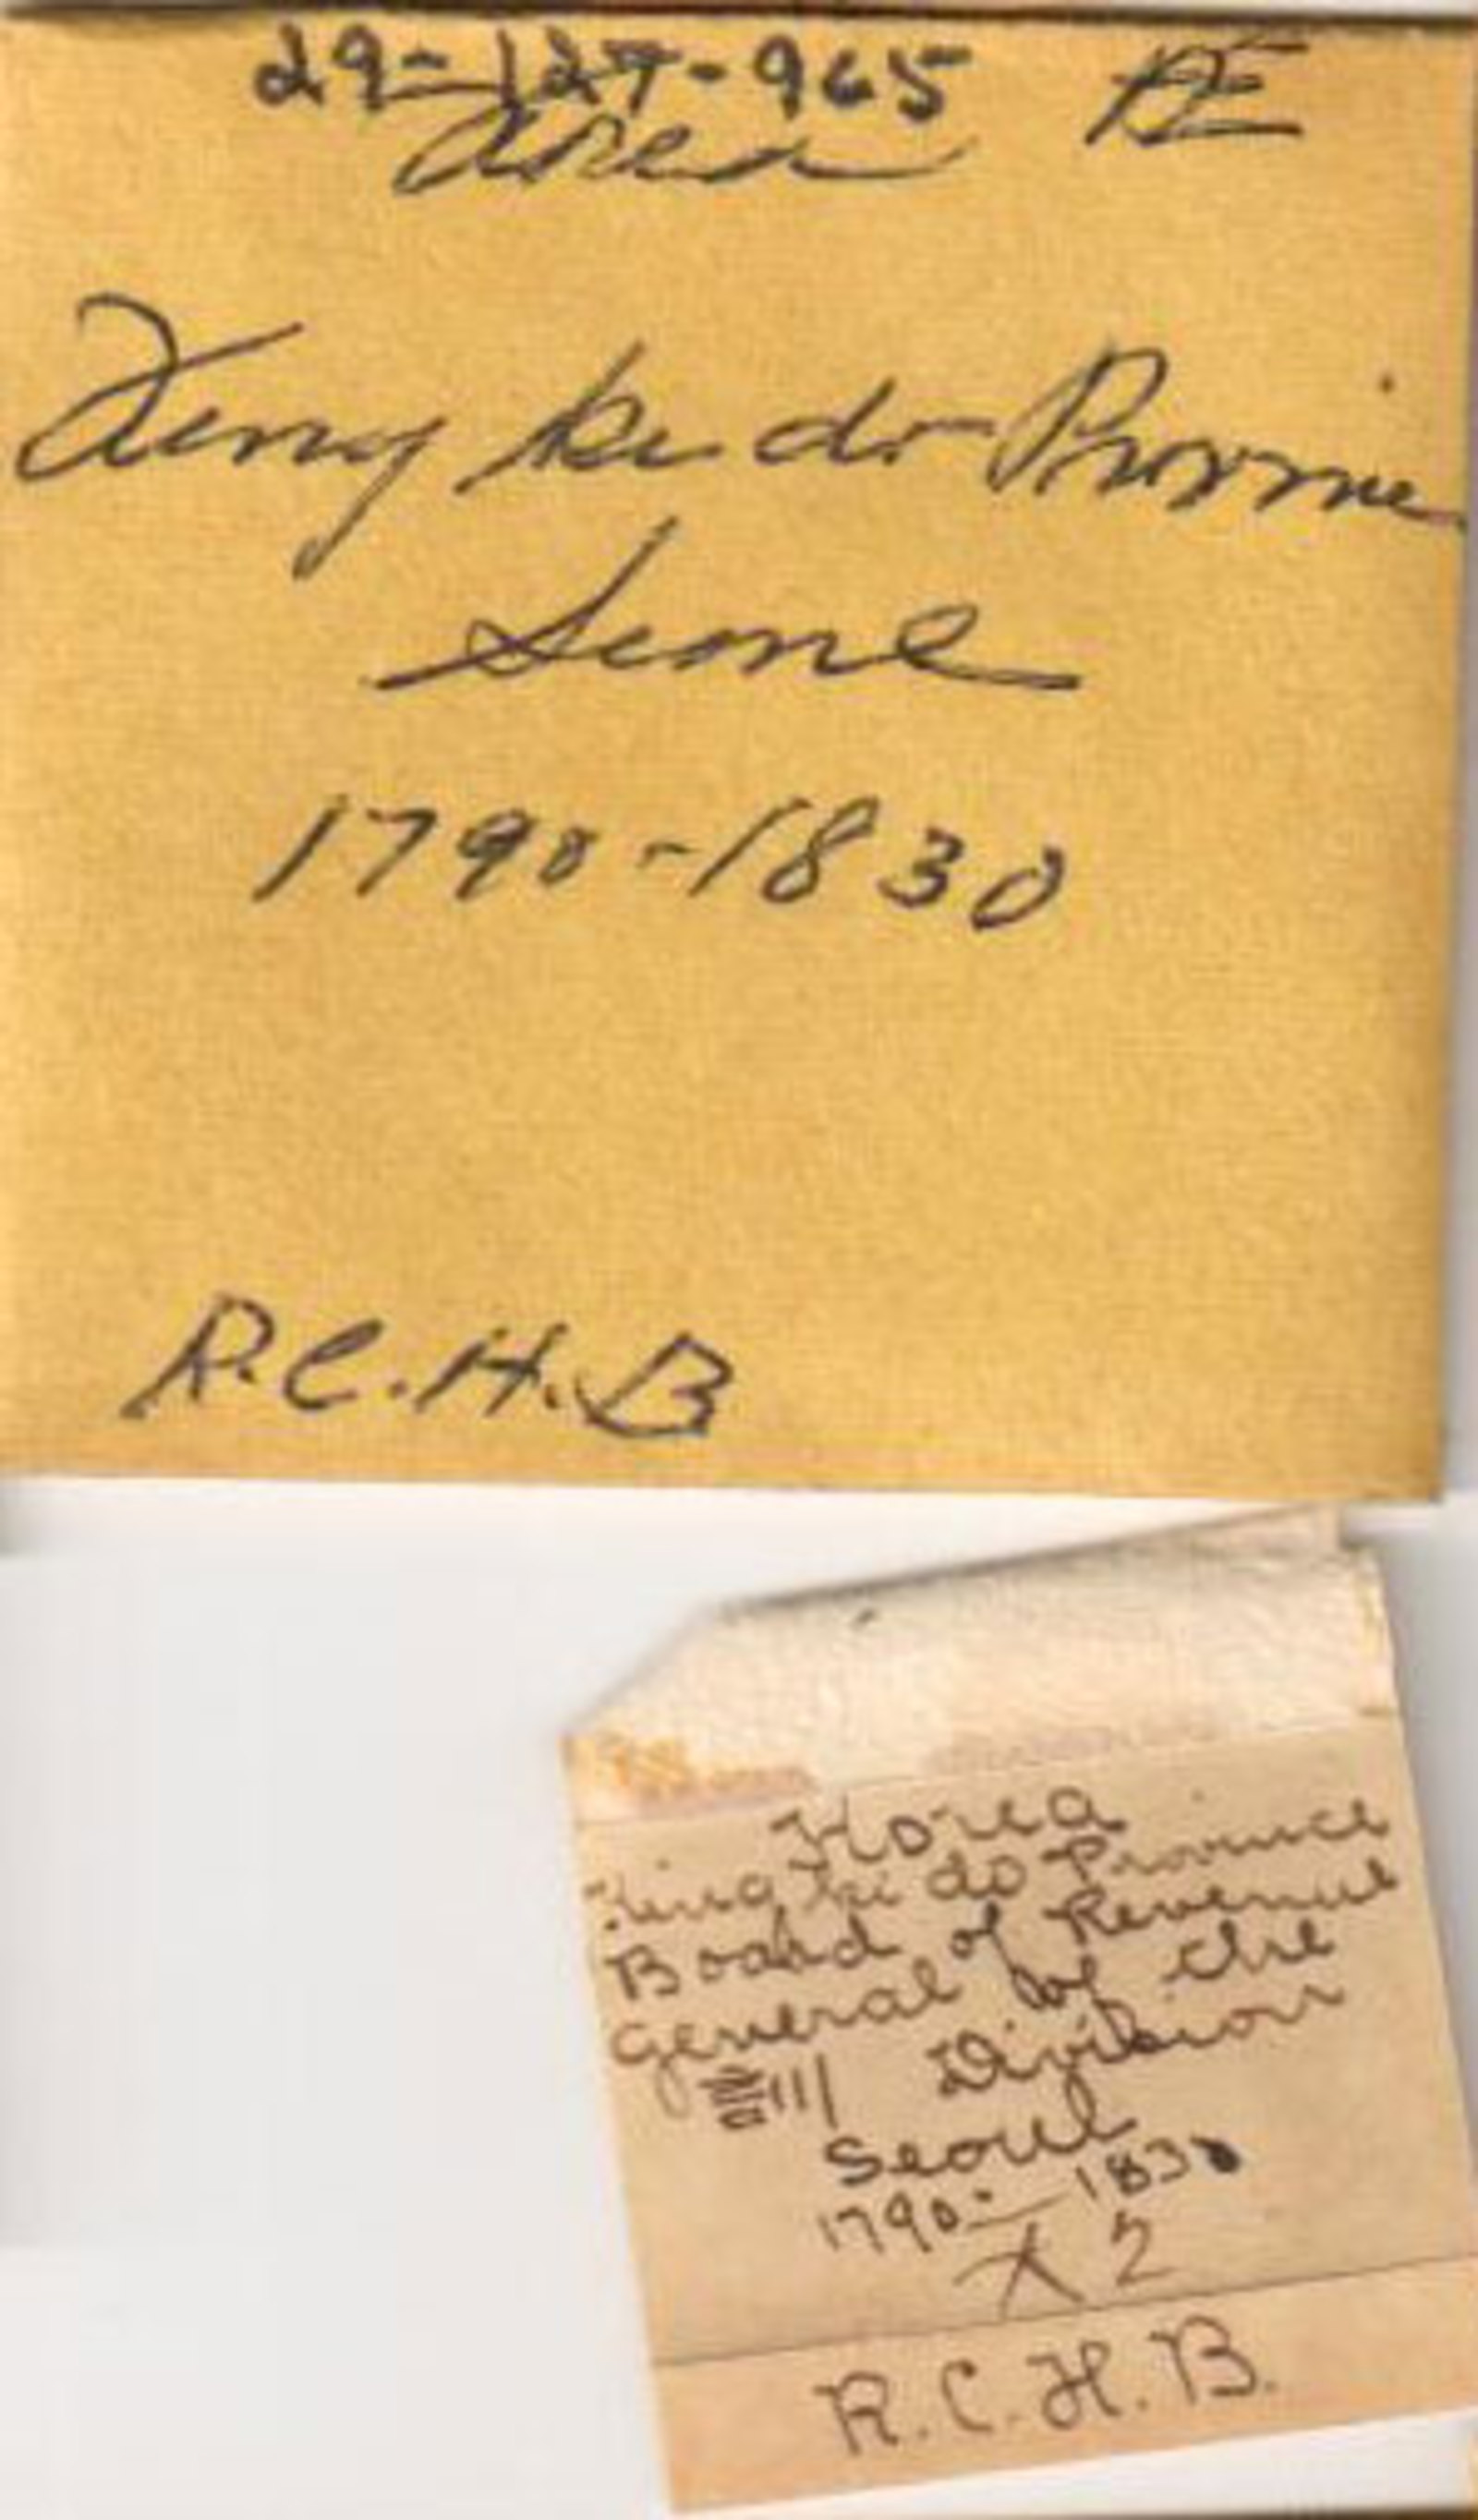 29-127-965 AE
Korea
King ki do Province
Seoul
1790-1830
R.C.H.B
Korea
King ki do Province
Board of Revenue
General of the
III Division
Seoul
1790-1830
X 2
R.C.H.B.